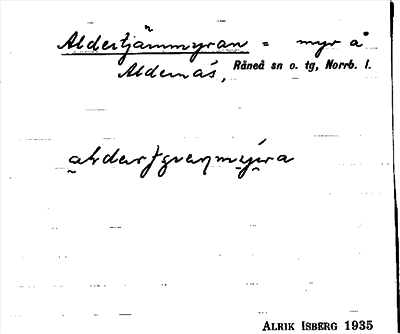 Aldertjärnmyran = myr å
Aldernäs, Råneå sn o. tg, Norrb. l.
ALRIK ISBERG 1935